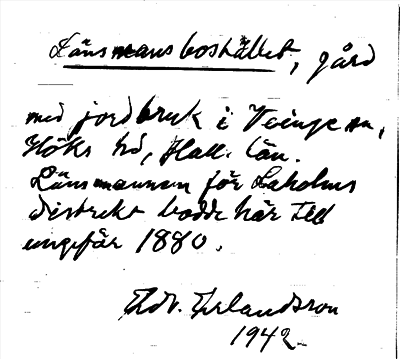 Länsmansbostället, gård
med jordbruk i Veinge sn,
Höks hd, Hall. län.
Länsmannen för Laholms
distrikt bodde här till
ungefär 1880.
Edv. Erlandsson
1942